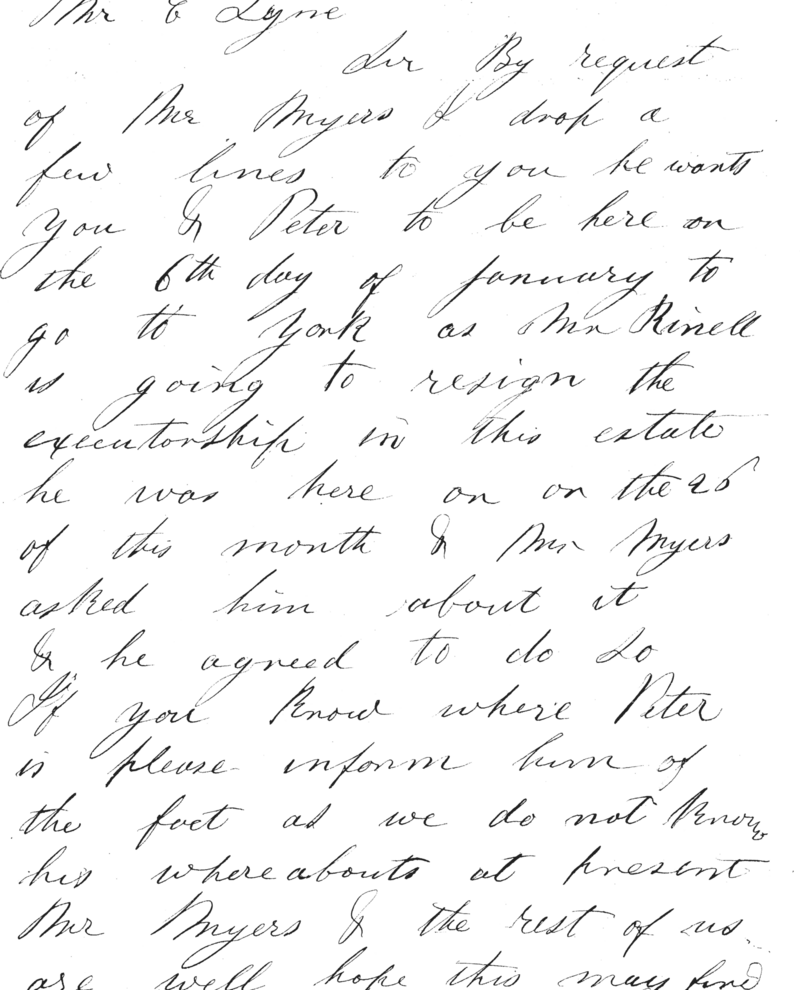 Mr C Lyne
Sir By request
of Mr Myers I drop a
few lines to you he wants
you & Peter to be here on
the 6th day of January to
go to York as Mr Rinell
is going to resign the
executorship in this estate
he was here on on the 26
of this month & Mr Myers
asked him about it
& he agreed to do so
If you know where Peter
is please inform him of
the fact as we do not know
his whereabouts at present
Mr Myers & the rest of us
are well hope this may find